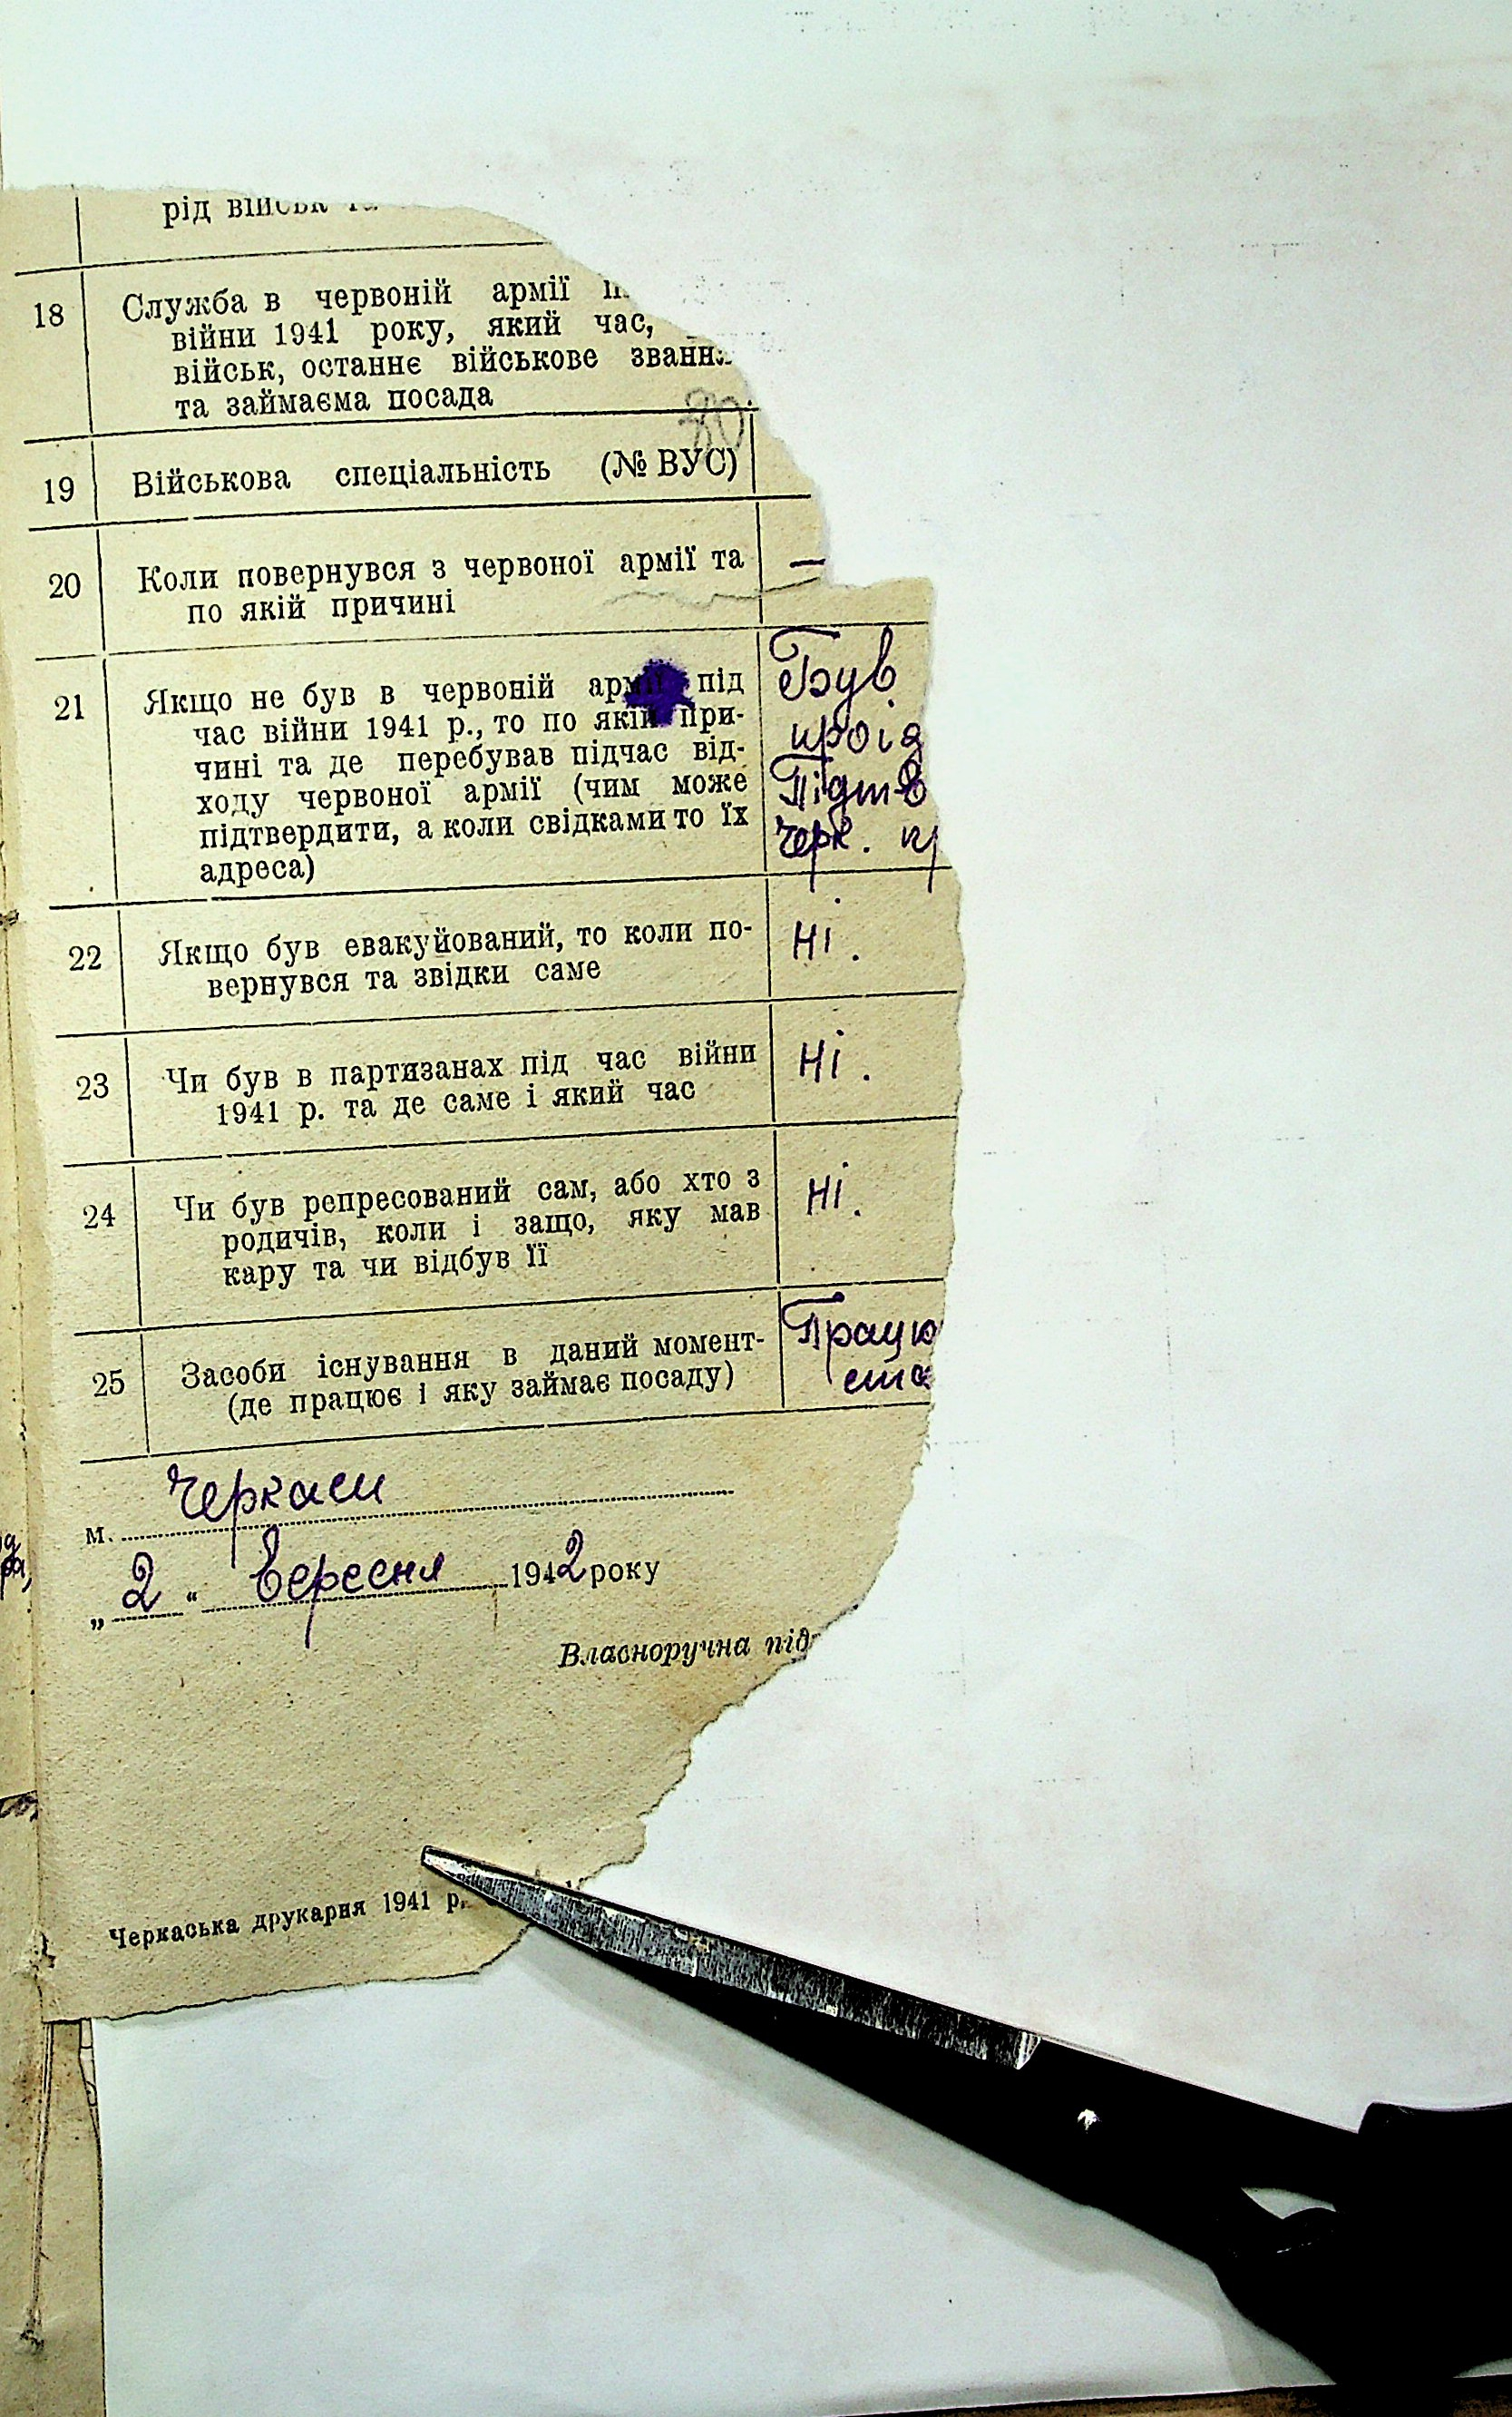 рід військ та
18 Служба в червоній армії
війни 1941 року, який час,
військ, останнє військове звання
та займаєма посада
80
19 Військова спеціальність (№ ВУС)
20 Коли повернувся з червоної армії та —
по якій причині
21 Якщо не був в червоній армії під Був
час війни 1941 р., то по якій при-
чині та де перебував підчас від- проїд
ходу червоної армії (чим може Підтв
підтвердити, а коли свідками то їх Черк. пр
адреса)
22 Якщо був евакуйований, то коли по- Ні.
вернувся та звідки саме
23 Чи був в партизанах під час війни Ні.
1941 р. та де саме і який час
24 Чи був репресований сам, або хто з Ні.
родичів, коли і защо, яку мав
кару та чи відбув її
25 Засоби існування в даний момент- Працю
(де працює і яку займає посаду) ста
м. Черкаси
„ 2 “ Вересня 1942 року
Власноручна під
Черкаська друкарня 1941 р.